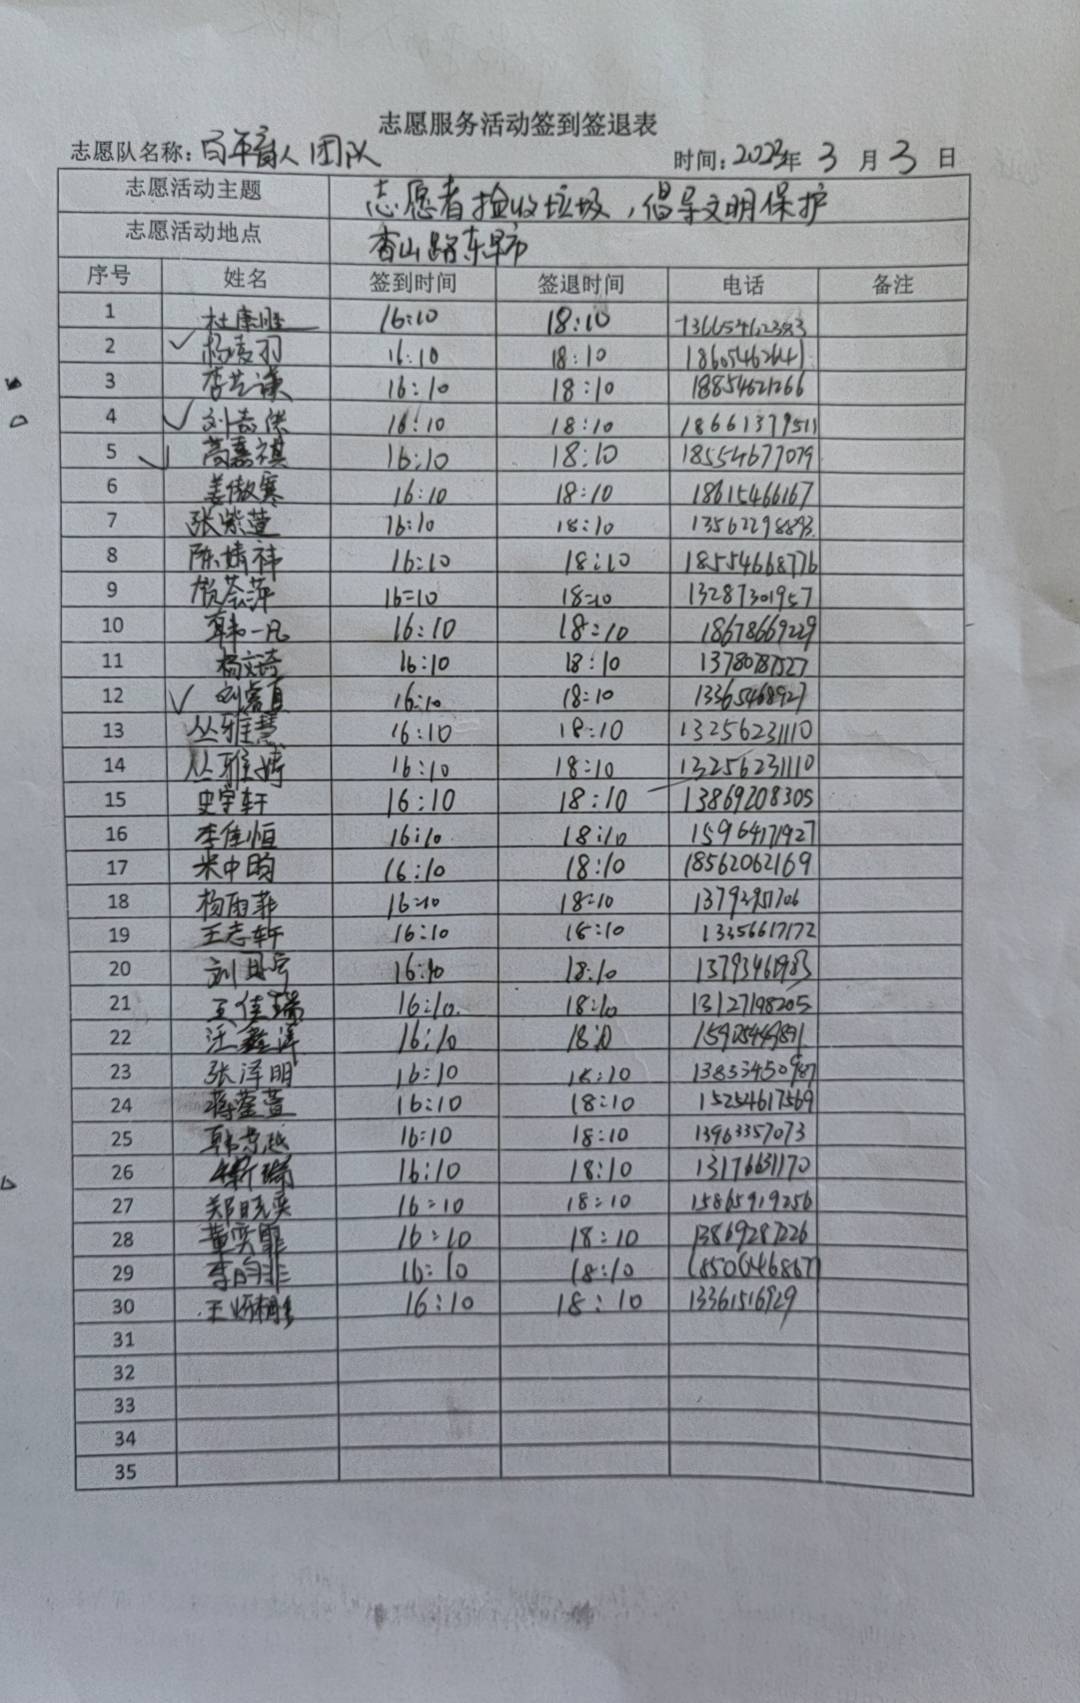 志愿服务活动签到签退表
志愿队名称：百年育人团队 时间：2023年 3 月 3 日
志愿活动主题 志愿者捡收垃圾，倡导文明保护
志愿活动地点 香山路东早市
序号 姓名 签到时间 签退时间 电话 备注
1 杜康 16:10 18:10
2 杨凌羽 16:10 18:10
3 李芸谦 16:10 18:10 18854621266
4 刘 16:10 18:10 18661379511
5 高嘉祺 16:10 18:10 18554677079
6 姜傲寒 16:10 18:10 18615466167
7 张紫萱 16:10 18:10 13562298893
8 陈婧祎 16:10 18:10 18554668776
9 贺荟萍 16:10 18:10 13287301957
10 韩一凡 16:10 18:10 18678669229
11 杨文琦 16:10 18:10
12 16:10 18:10 13365468927
13 丛雅慧 16:10 18:10 13256231110
14 丛雅婷 16:10 18:10 13256231110
15 史宇轩 16:10 18:10 13869208305
16 李佳恒 16:10 18:10 15964171927
17 米中昀 16:10 18:10 18562062169
18 杨雨菲 16:10 18:10
19 王志轩 16:10 18:10 13356617172
20 16:10 18:10 13793461983
21 王佳瑞 16:10 18:10 13127198205
22 汪鑫洋 16:10 18:10
23 张泽明 16:10 18:10
24 蒋莹萱 16:10 18:10 15254617569
25 韩 越 16:10 18:10 13963357073
26 16:10 18:10 13176631170
27 郑晓奕 16:10 18:10 15865919256
28 董奕霏 16:10 18:10 13869287226
29 李昀非 16:10 18:10
30 王 16:10 18:10 13361516929
31
32
33
34
35